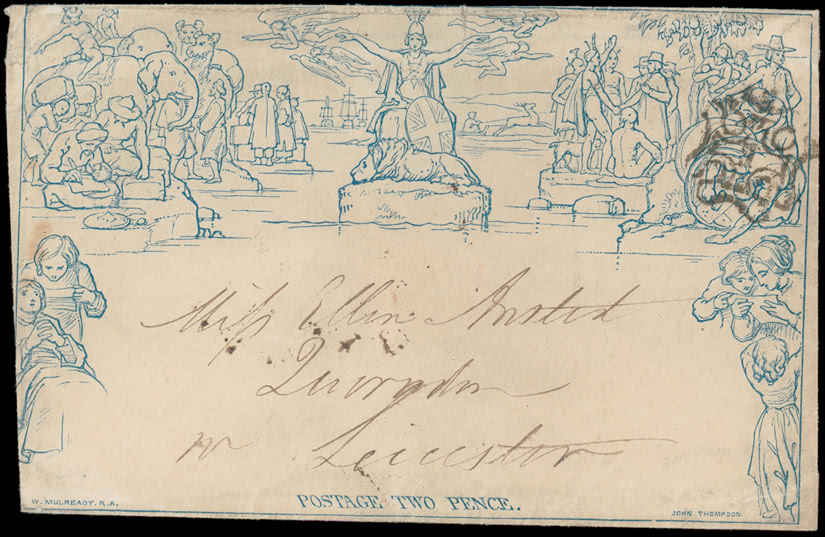 Miss Ellen Ansted
Quorndon
nr Leicester
W. MULREADY. R.A.
POSTAGE TWO PENCE.
JOHN THOMPSON